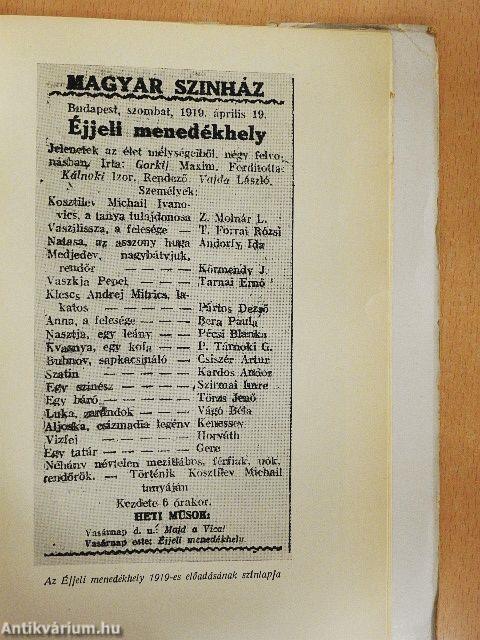 MAGYAR SZINHÁZ
Budapest, szombat, 1919. április 19.
Éjjeli menedékhely
Jelenetek az élet mélységeiből, négy felvo-
násban, Irta: Gorkij Maxim. Forditotta:
Kálnoki Izor. Rendező Vajda László.
Személyek:
Kosztilev Michail Ivano-
vics, a tanya tulajdonosa Z. Molnár L.
Vaszilissza, a felesége — T. Forrai Rózsi
Natasa, az asszony huga Andorfy, Ida
Medjedev, nagybátyjuk,
rendőr — — — — Körmendy J.
Vaszkja Pepel — — — Tarnai Ernő
Klescs Andrej Mitrics, la-
katos — — — — Pártos Dezső
Anna, a felesége — — Bera Paula
Nasztja, egy leány — — Pécsi Blanka
Kvasnya, egy kofa — — P. Tárnoki G.
Bubnov, sapkacsináló — Csiszér Artur
Szatin — — — — Kardos Andor
Egy szinész — — — Szirmai Imre
Egy báró — — — — Törzs Jenő
Luka, zarándok — — Vágó Béla
Aljoska, csizmadia legény Kenessey
Vizfej — — — — Horváth
Egy tatár — — — — Gere
Néhány névtelen mezitlábos, férfiak, nők,
rendőrök. — Történik Kosztilev Michail
tanyáján
Kezdete 6 órakor.
HETI MŰSOR:
Vasárnap d. u.: Majd a Vica!
Vasárnap este: Éjjeli menedékhely
Az Éjjeli menedékhely 1919-es előadásának színlapja
Antikvárium.hu